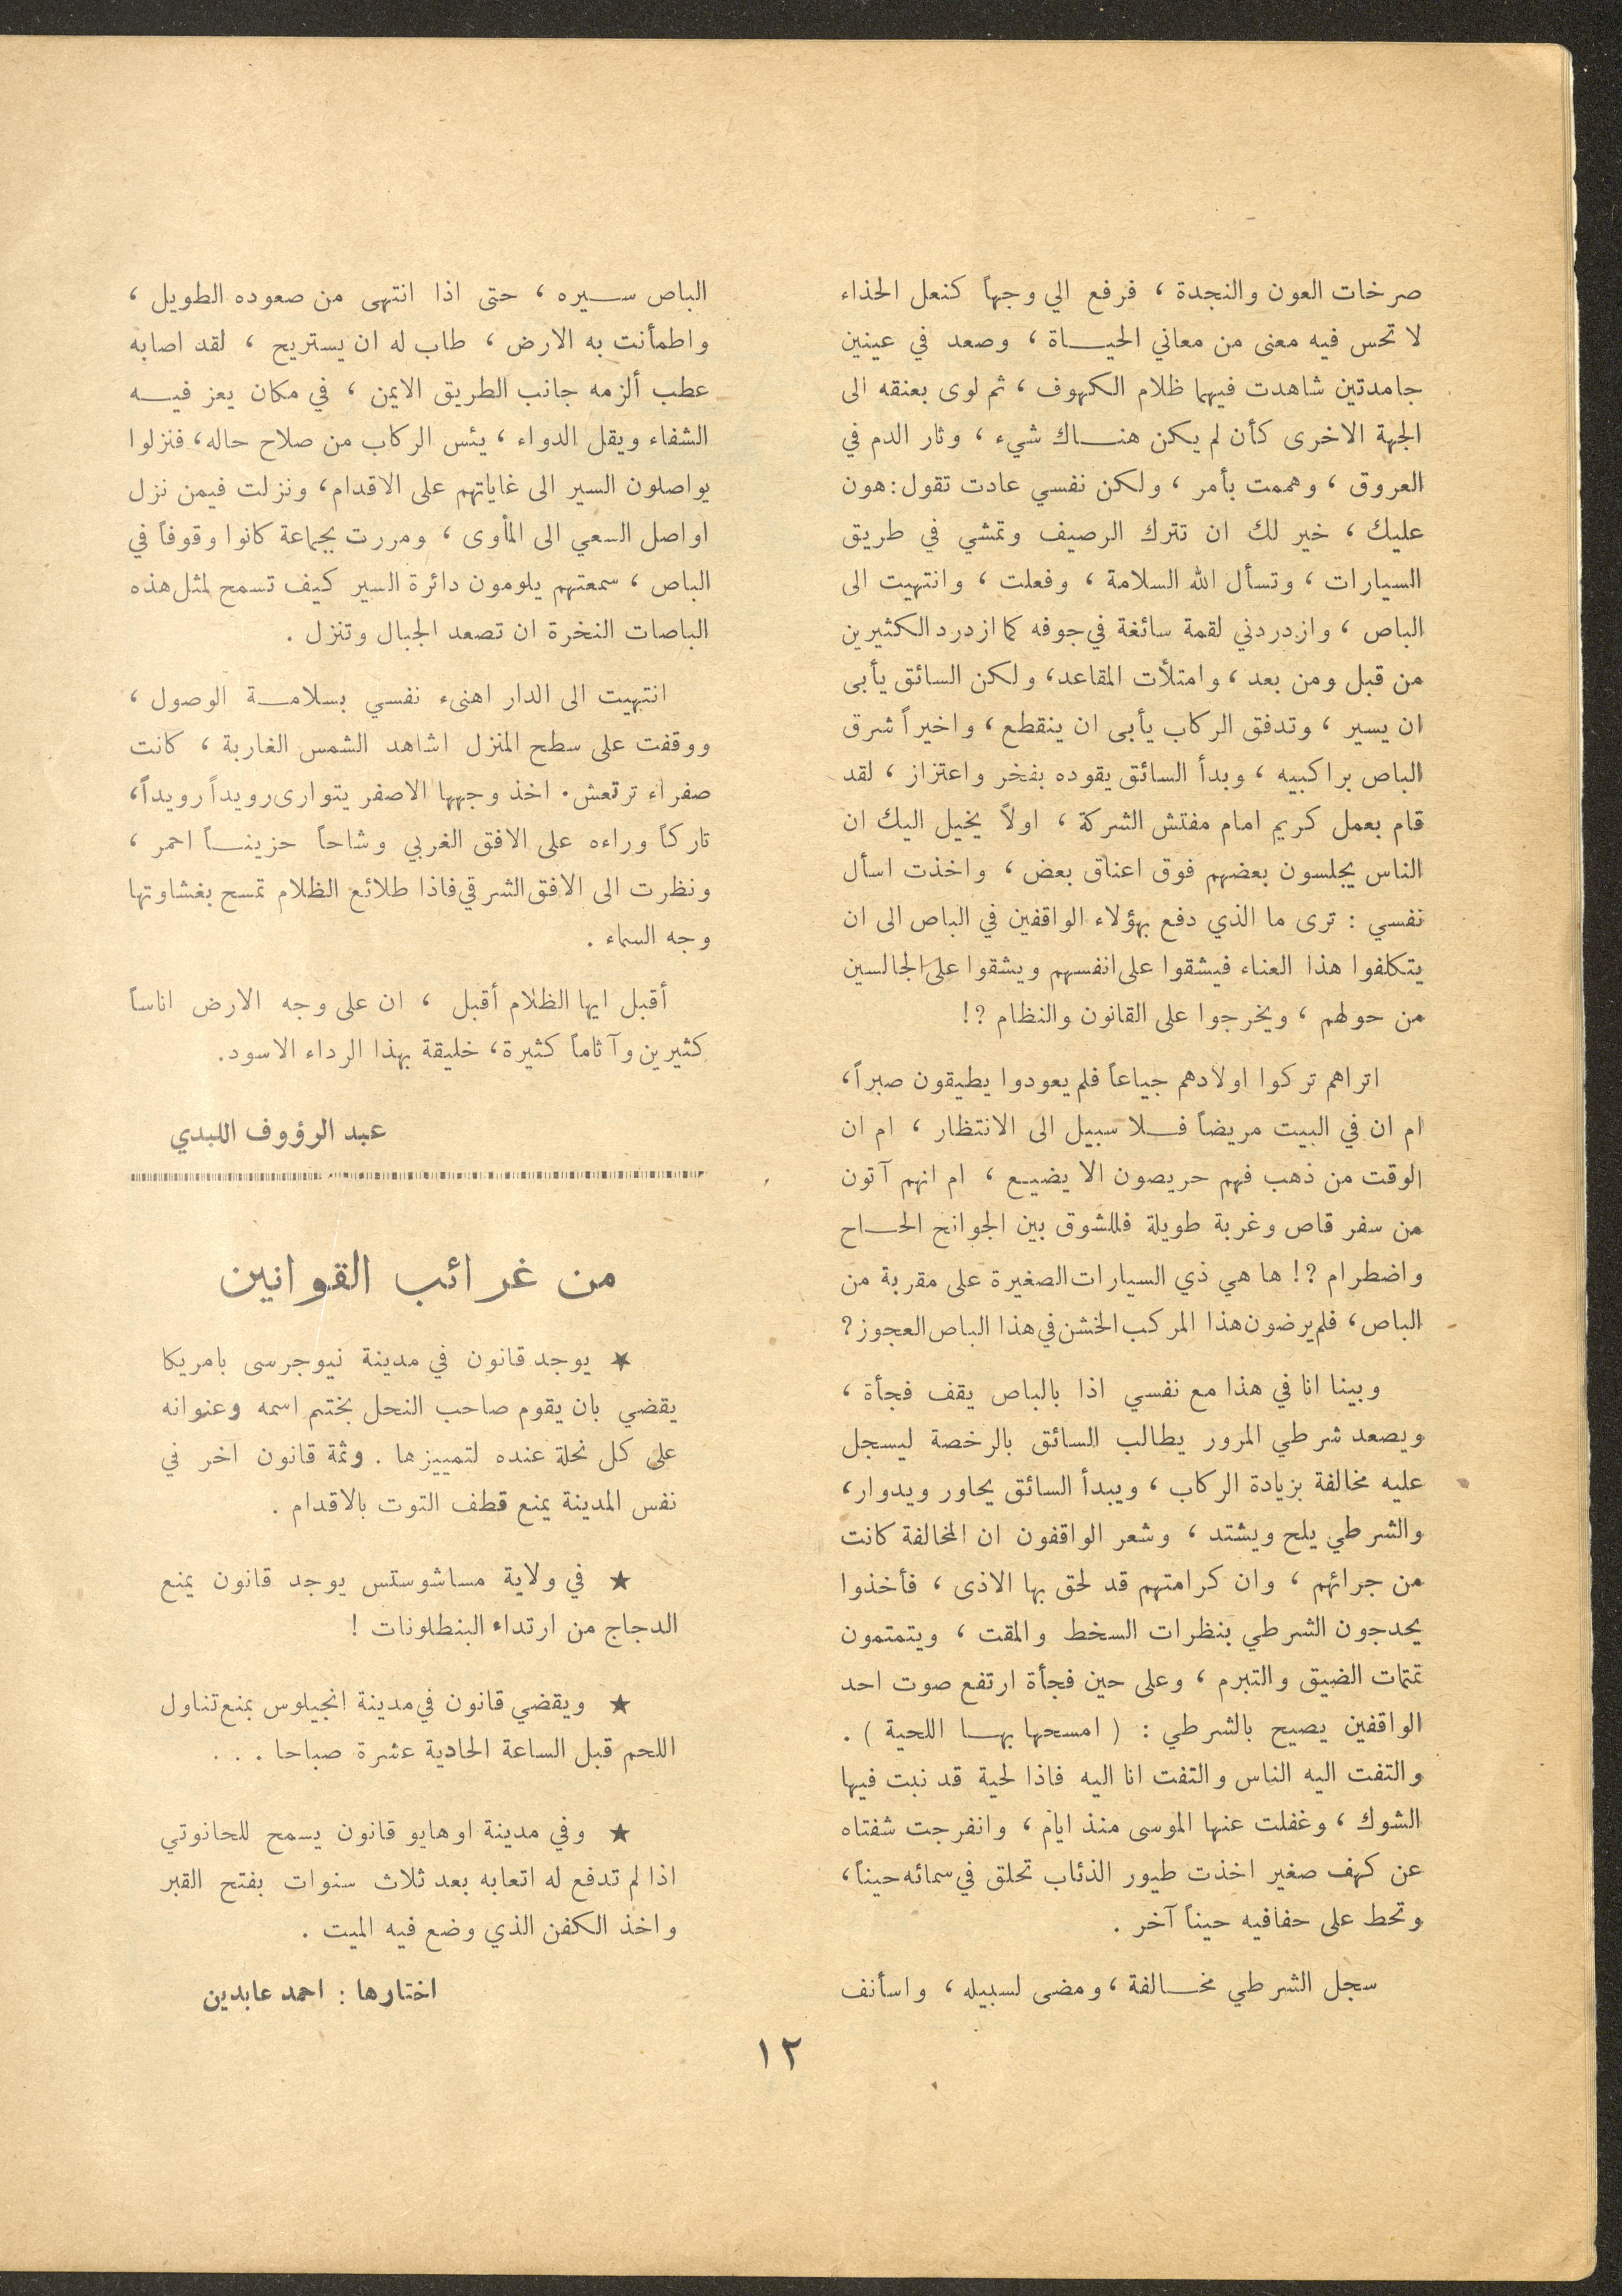 صرخات العون والنجدة ، فرفع الي وجهاً كنعل الحذاء
لا تحس فيه معنى من معاني الحيـــاة ، وصعد في عينين
جامدتين شاهدت فيهما ظلام الكهوف ، ثم لوى بعنقه الى
الجهة الاخرى كأن لم يكن هنـــاك شيء ، وثار الدم في
العروق ، وهممت بأمر ، ولكن نفسي عادت تقول : هون
عليك ، خير لك ان تترك الرصيف وتمشي في طريق
السيارات ، وتسأل الله السلامة ، وفعلت ، وانتهيت الى
الباص ، وازدردني لقمة سائغة في جوفه كما ازدرد الكثيرين
من قبل ومن بعد ، وامتلأت المقاعد ، ولكن السائق يأبى
ان يسير ، وتدفق الركاب يأبى ان ينقطع ، واخيراً شرق
الباص براكبيه ، وبدأ السائق يقوده بفخر واعتزاز ، لقد
قام بعمل كريم امام مفتش الشركة ، اولاً يخيل اليك ان
الناس يجلسون بعضهم فوق اعناق بعض ، واخذت اسأل
نفسي : ترى ما الذي دفع بهؤلاء الواقفين في الباص الى ان
يتكلفوا هذا العناء فيشقوا على انفسهم ويشقوا على الجالسين
من حولهم ، ويخرجوا على القانون والنظام ؟!
اتراهم تركوا اولادهم جياعاً فلم يعودوا يطيقون صبراً ،
ام ان في البيت مريضاً فـــلا سبيل الى الانتظار ، ام ان
الوقت من ذهب فهم حريصون الا يضيـع ، ام انهم آتون
من سفر قاص وغربة طويلة فللشوق بين الجوانح الحـــاح
واضطرام ؟! ها هي ذي السيارات الصغيرة على مقربة من
الباص ، فلم يرضون هذا المركب الخشن في هذا الباص العجوز ؟
وبينا انا في هذا مع نفسي اذا بالباص يقف فجأة ،
ويصعد شرطي المرور يطالب السائق بالرخصة ليسجل
عليه مخالفة بزيادة الركاب ، ويبدأ السائق يحاور ويدوار ،
والشرطي يلح ويشتد ، وشعر الواقفون ان المخالفة كانت
من جرائهم ، وان كرامتهم قد لحق بها الاذى ، فأخذوا
يحدجون الشرطي بنظرات السخط والمقت ، ويتمتمون
تمتمات الضيق والتبرم ، وعلى حين فجأة ارتفع صوت احد
الواقفين يصيح بالشرطي : ( امسحها بهـــا اللحية ) .
والتفت اليه الناس والتفت انا اليه فاذا لحية قد نبت فيها
الشوك ، وغفلت عنها الموسى منذ ايام ، وانفرجت شفتاه
عن كهف صغير اخذت طيور الذئاب تحلق في سمائه حيناً ،
وتحط على حفافيه حيناً آخر .
سجل الشرطي مخـــالفة ، ومضى لسبيله ، واسأنف
الباص ســـيره ، حتى اذا انتهى من صعوده الطويل ،
واطمأنت به الارض ، طاب له ان يستريح ، لقد اصابه
عطب ألزمه جانب الطريق الايمن ، في مكان يعز فيـــه
الشفاء ويقل الدواء ، يئس الركاب من صلاح حاله ، فنزلوا
يواصلون السير الى غاياتهم على الاقدام ، ونزلت فيمن نزل
اواصل السعي الى المأوى ، ومررت بجماعة كانوا وقوفاً في
الباص ، سمعتهم يلومون دائرة السير كيف تسمح لمثل هذه
الباصات النخرة ان تصعد الجبال وتنزل .
انتهيت الى الدار اهنىء نفسي بسلامـــة الوصول ،
ووقفت على سطح المنزل اشاهد الشمس الغاربة ، كانت
صفراء ترتعش . اخذ وجهها الاصفر يتوارى رويداً رويداً ،
تاركاً وراءه على الافق الغربي وشاحاً حزينـــاً احمر ،
ونظرت الى الافق الشرقي فاذا طلائع الظلام تمسح بغشاوتها
وجه السماء .
أقبل ايها الظلام أقبل ، ان على وجه الارض اناساً
كثيرين وآثاماً كثيرة ، خليقة بهذا الرداء الاسود .
عبد الرؤوف اللبدي
من غرائب القوانين
★ يوجد قانون في مدينة نيوجرسى بامريكا
يقضي بان يقوم صاحب النحل بختم اسمه وعنوانه
على كل نحلة عنده لتمييزها . وثمة قانون اخر في
نفس المدينة يمنع قطف التوت بالاقدام .
★ في ولاية مساشوستس يوجد قانون يمنع
الدجاج من ارتداء البنطلونات !
★ ويقضي قانون في مدينة انجيلوس بمنع تناول
اللحم قبل الساعة الحادية عشرة صباحا . . .
★ وفي مدينة اوهايو قانون يسمح للحانوتي
اذا لم تدفع له اتعابه بعد ثلاث سنوات بفتح القبر
واخذ الكفن الذي وضع فيه الميت .
اختارها : احمد عابدين
١٢